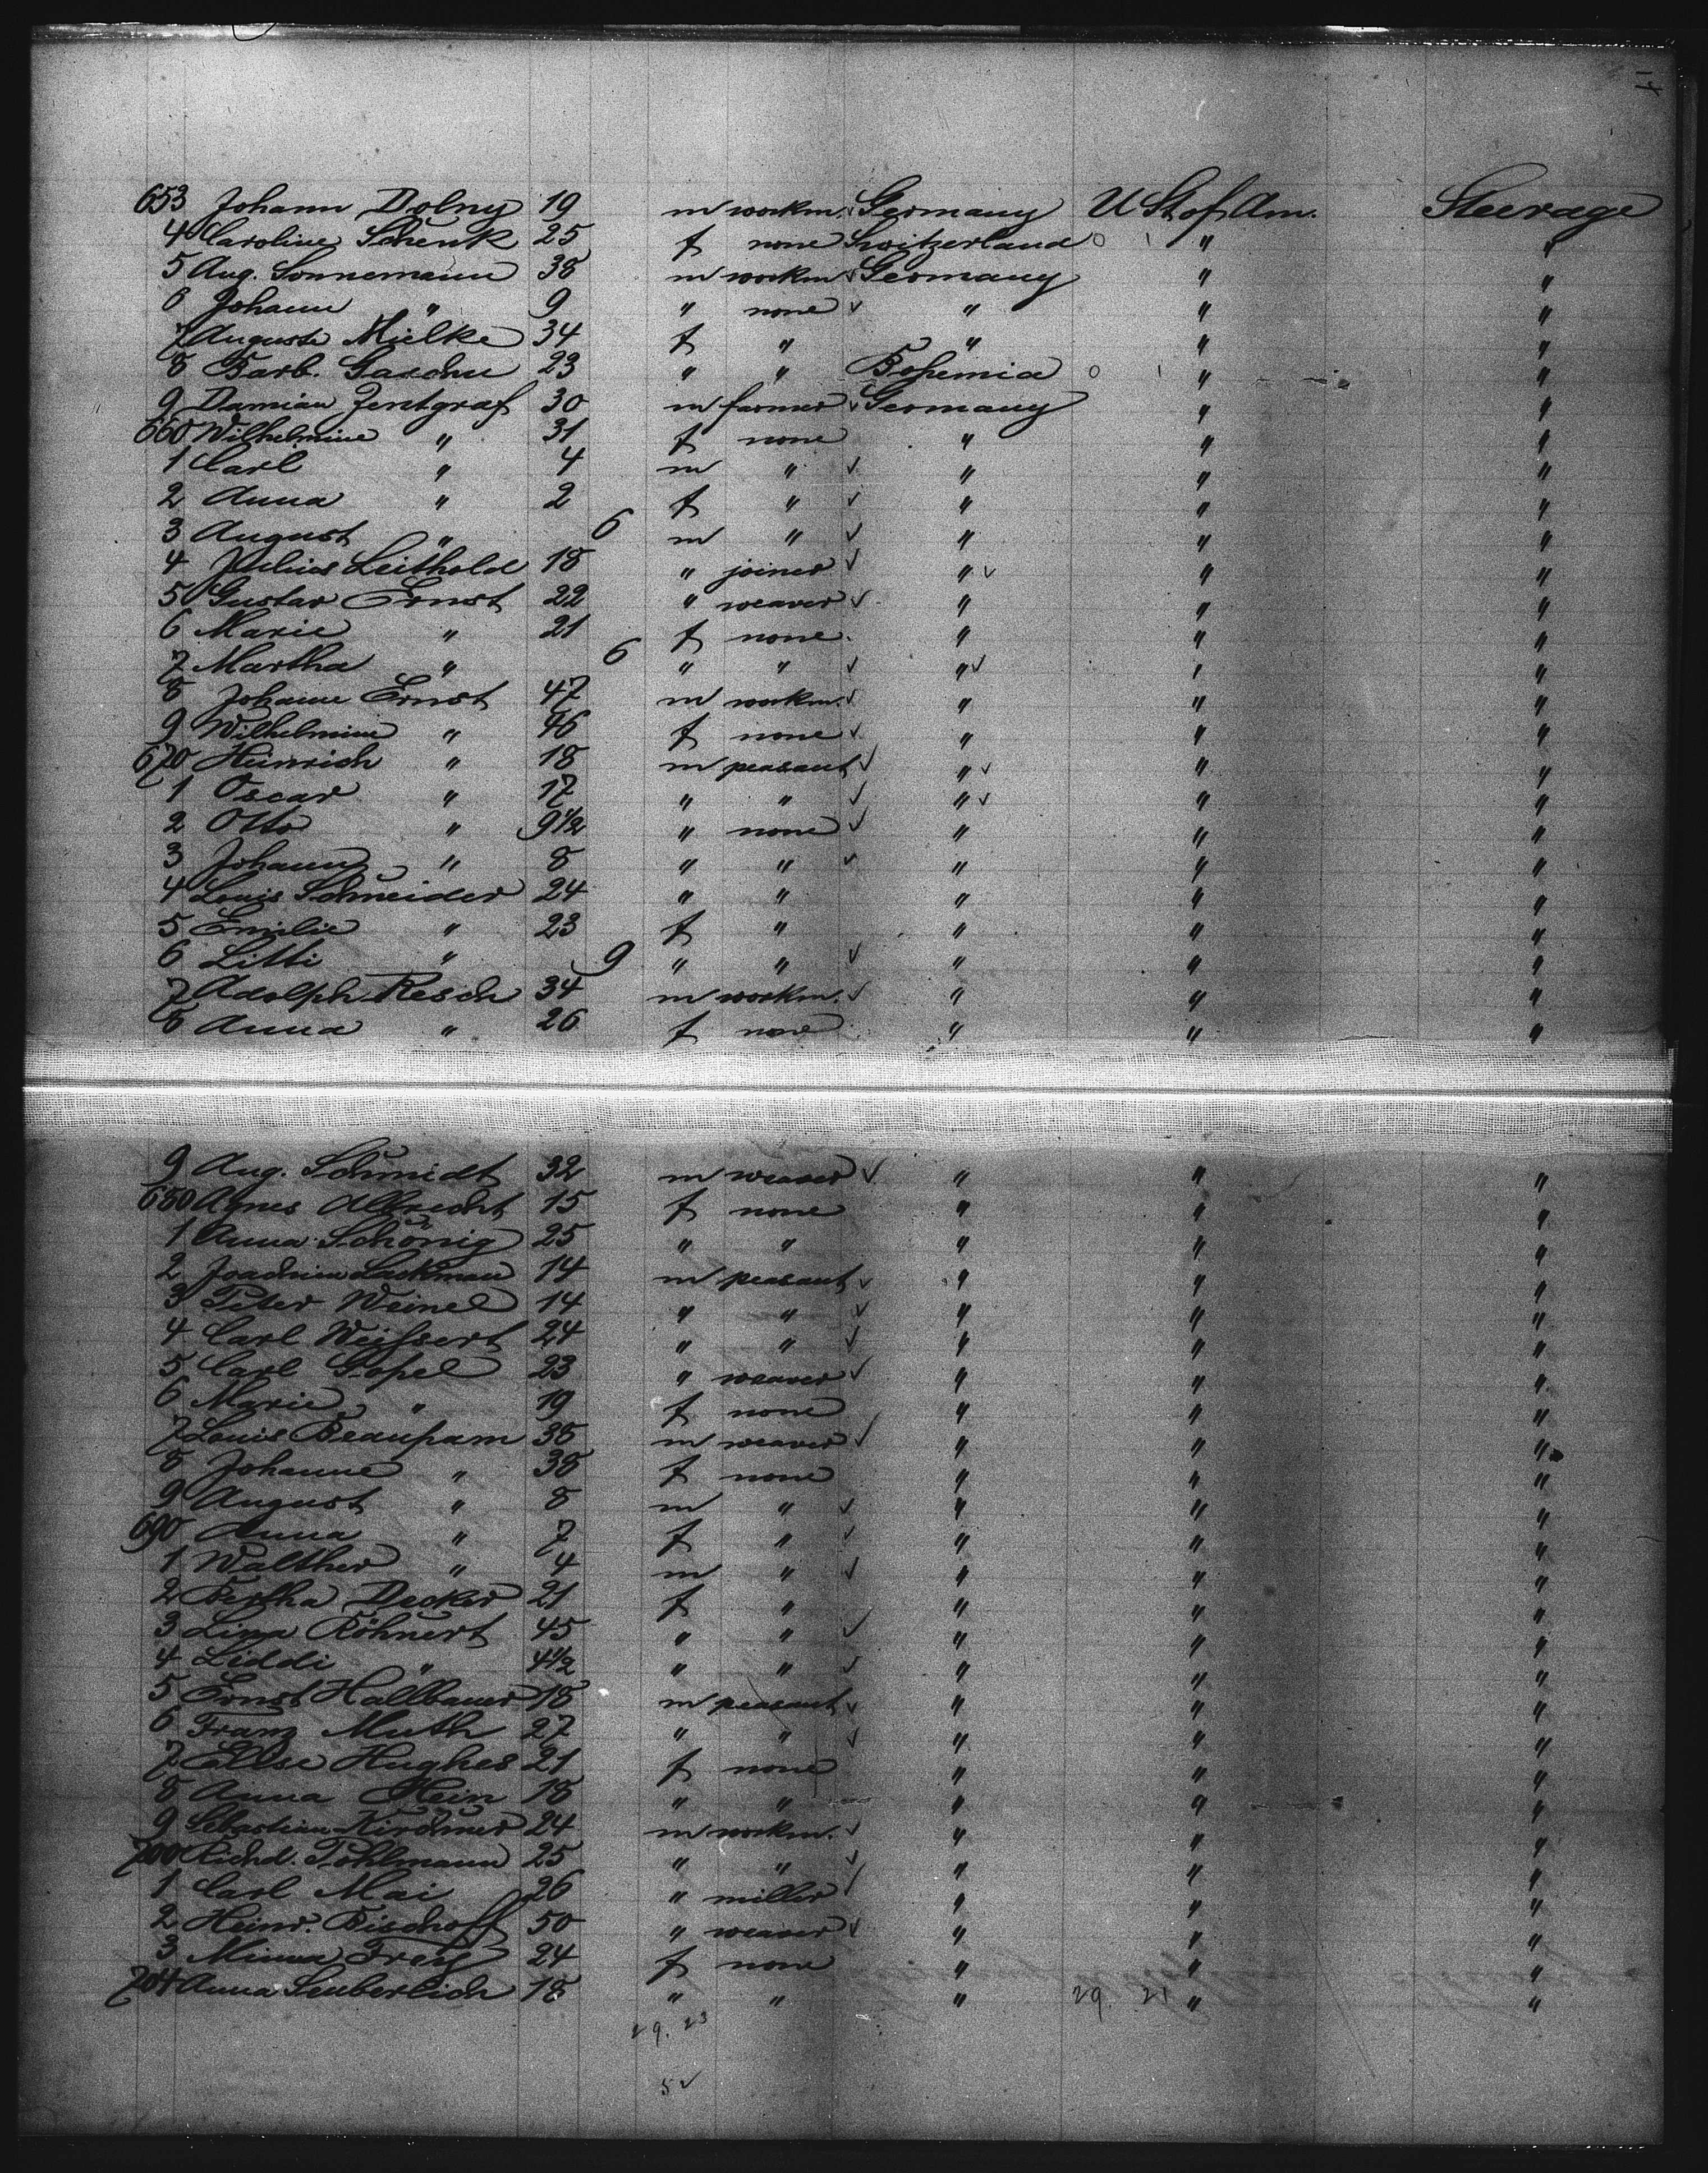 653 Johann Dolny 19 m workm. Germany U St of Am. Steerage
4 Caroline Schenk 25 f none Switzerland " "
5 Aug. Sonnemann 38 m workm Germany " "
6 Johann " 9 " none " " "
7 Auguste Mielke 34 f " " " "
8 Barb. 23 " " Bohemia " "
9 Damian Zentgraf 30 m farmer Germany " "
660 Wilhelmine " 31 f none " " "
1 Carl " 4 m " " " "
2 Anna " 2 f " " " "
3 August " 6 m " " " "
4 Julius Leithold 18 " joiner " " "
5 Gustav Ernst 22 " weaver " " "
6 Marie " 21 f none " " "
7 Martha " 6 " " " " "
8 Johann Ernst 47 m workm. " " "
9 Wilhelmine " 46 f none " " "
670 Heinrich " 18 m peasant " " "
1 Oscar " 17 " " " " "
2 Otto " 9 1/2 " none " " "
3 Johann " 8 " " " " "
4 Louis Schneider 24 " " " " "
5 Emilie " 23 f " " " "
6 Litti " 9 " " " " "
7 Adolph Resch 34 m workm. " " "
8 Anna " 26 f none " " "
9 Aug. Schmidt 32 m weaver " " "
680 Agnes Albrecht 15 f none " " "
1 Anna Schönig 25 " " " " "
2 Lackman 14 m peasant " " "
3 Peter Weinel 14 " " " " "
4 Carl Weissert 24 " " " " "
5 Carl Göpel 23 " weaver " " "
6 Marie " 19 f none " " "
7 Louis Beaupam 38 m weaver " " "
8 Johanne " 38 f none " " "
9 August " 8 m " " " "
690 Anna " 7 f " " " "
1 Walther " 4 m " " " "
2 Bertha Decker 21 f " " " "
3 Lina Röhnert 45 " " " " "
4 Liddi " 4 1/2 " " " " "
5 Ernst Hallbauer 18 m peasant " " "
6 Franz Muth 27 " " " " "
7 Ellse Hughes 21 f none " " "
8 Anna Hein 18 " " " " "
9 Sebastian Kirchner 24 m workm. " " "
700 Richd. Pohlmann 25 " " " " "
1 Carl Mai 26 " miller " " "
2 Heinr. Bischoff 50 " weaver " " "
3 Minna Frey 24 f none " " "
704 Anna Seuberlich 18 " " " 29. 21 " "
29. 23
52